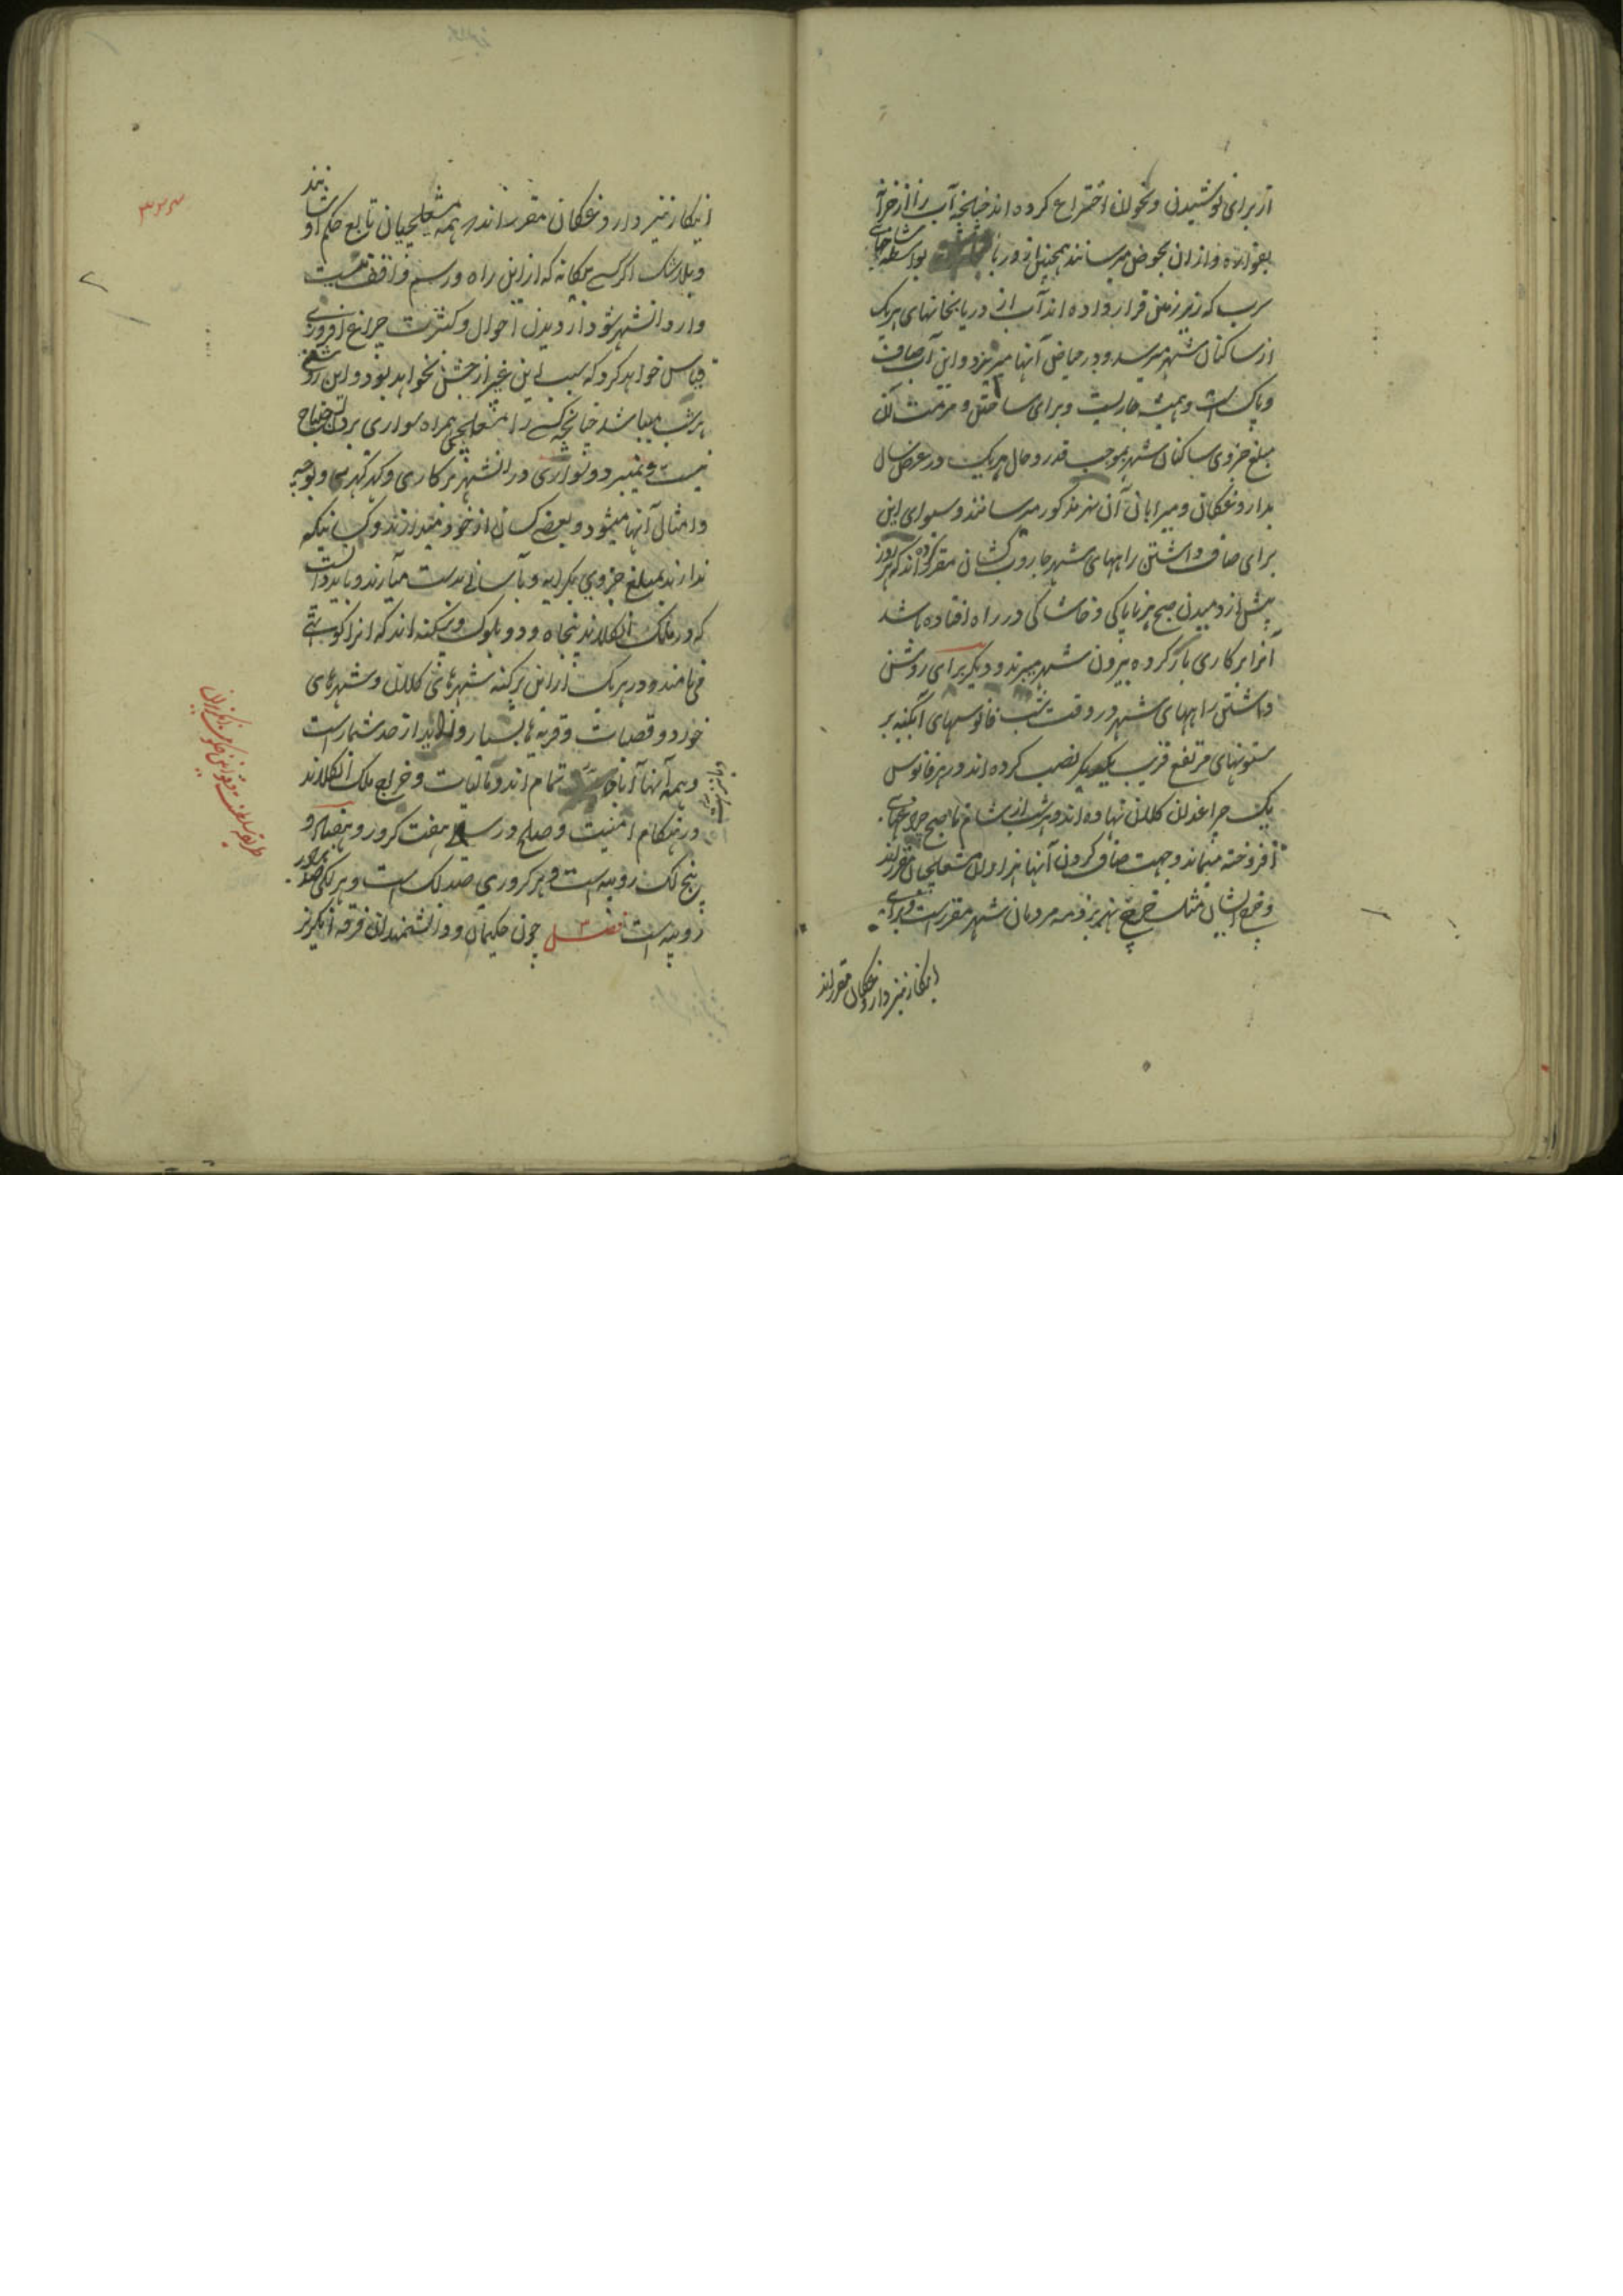 از برای نوشیدن و نخوران اختراع کرده اند چنانچه آب را از خزانه
بفواره و ازان بحوض میرسانند همچنین از دریا بواسطه
سرب که زیر زمین قرار داده اند آب از دریا بخانهای هر یک
از ساکنان شهر میرسد و در حیاض آنها میریزد و این آب صاف
و پاک است و همیشه جاریست و برای ساختن و مرمت آن
مبلغ جزوی ساکنان شهر بموجب قدر و حال هر یک در عرض سال
بداروغگان و میرابانی آن نهر مذکور میرسانند و سوای این
برای صاف داشتن راههای شهر جاروب کشان مقرر کرده اند که هر روز
پیش از دمیدن صبح هر ناپاکی و خاشاکی در راه افتاده باشد
آنرا بر کاری بار کرده بیرون شهر میبرند و دیگر برای روشن
داشتن راههای شهر در وقت شب فانوسهای آبگینه بر
ستونهای مرتفع قریب یکدیگر نصب کرده اند و در هر فانوس
یک چراغدان کلان نهاده اند و هر شب از شام تا صبح چراغهای
افروخته میماند و جهت صاف کردن آنها هزاران مشعلچیان مقرراند
و خرج ایشان مثل خرج نهر بر ذمه مردمان شهر مقرر است و برای
اینکار نیز داروغگان مقرراند
اینکار نیز داروغگان مقرر اند همه مشعلچیان تابع حکم او شانند
و بلاشک اگر کسی بیگانه که از این راه و رسم واقف نیست
وارد آنشهر شود از دیدن احوال و کثرت چراغ افروزی
قیاس خواهد کرد که سبب این غیر از جشن نخواهد بود و این روشنی
هر شب میباشد چنانچه کسی را مشعلچی همراه سواری بردن احتیاج
نیست و تمیبر دو سواری در آنشهر بر کاری و
و امثالی آنها میشود و بعضی کسان از خود میدارند و کسانیکه
ندارند بمبلغ جزوی بکرایه و بآسانی بدست میآرند و باید دانست
که در ملک انگلاند پنجاه و دو بلوک و پرگنه اند که آنرا کونتی
می نامند و در هر یک از این پرگنه شهرهای کلان و شهرهای
خورد و قصبات و قریه ها بسیار و زاید از حد شمار است
و همه آنها آباد تمام اند و مالیات و خراج ملک انگلاند
در هنگام امنیت و صلح در سال هفت کرور و هفتاد و
پنج لک روپیه است و هر کروری صد لک است و هر لکی صد هزار
روپیه است فصل ۳ چون حکیمان و دانشمندان فرقه انگریز